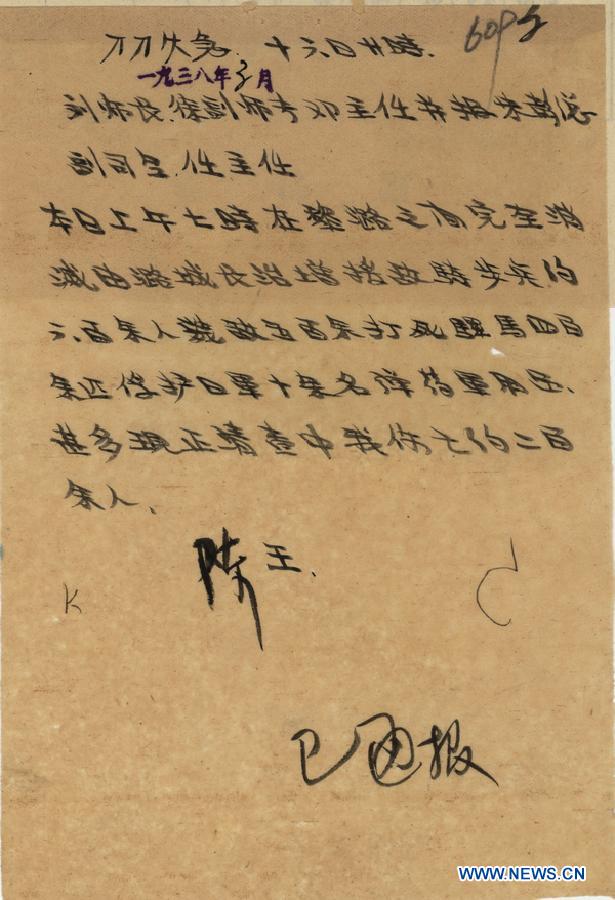 万万火急 十六日廿時
一九三八年3月
刘师长徐副师长邓主任并报朱彭总
副司令任主任
本日上午七時在黎路之间完全消
滅由潞城长治增援敌騎步兵约
六百余人毙敌五百余打死騾馬四百
余匹俘护日軍十余名弹药軍用品
甚多現正清查中我伤亡约二百
余人
陈 王
K C
已通报
WWW.NEWS.CN